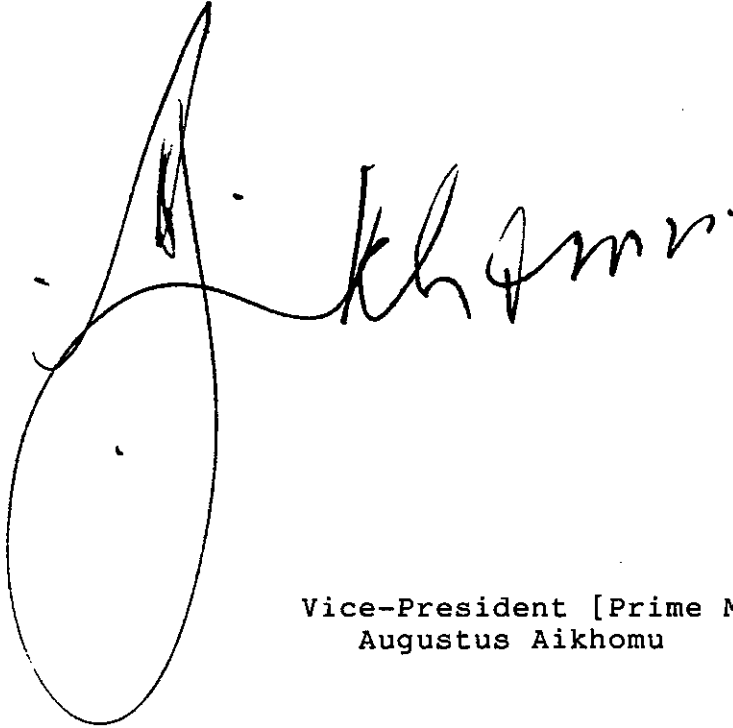 Aikhomu
Vice-President [Prime M
Augustus Aikhomu